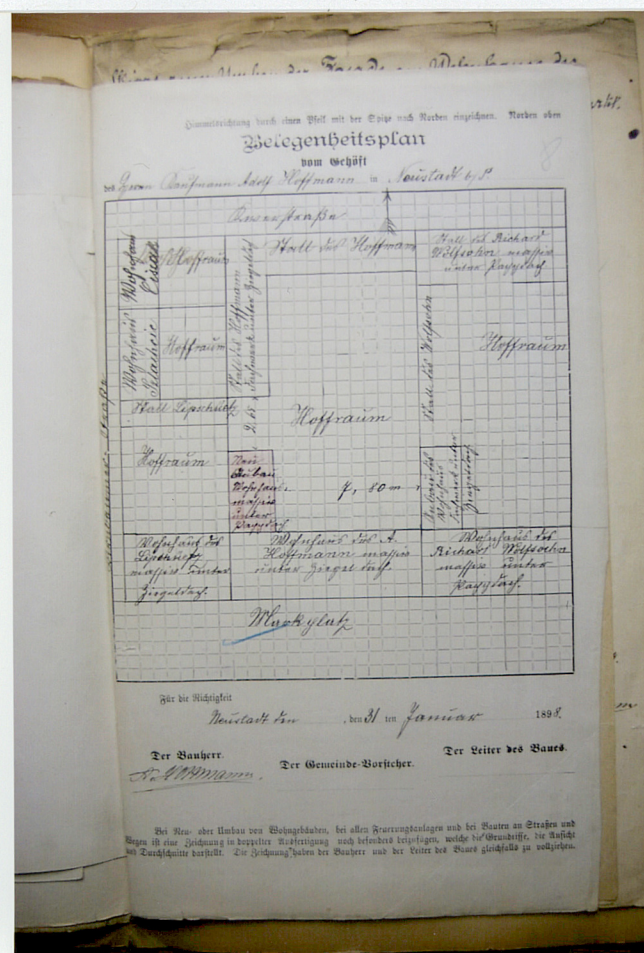 Himmelsrichtung durch einen Pfeil mit der Spitze nach Norden einzeichnen. Norden oben
8
Belegenheitsplan
vom Gehöft
des Herrn Kaufmann Adolf Hoffmann in Neustadt
Stall des Hoffmann
Stall des Richard
Wolfsohn massiv
unter Pappdach
Wohnhaus
Hoffraum
Stall des Hoffmann
Fachwerk unter Ziegeldach
Wohnhaus
Hoffraum
Stall des Wolfsohn
Hoffraum
Stall
2,65
Hoffraum
Hoffraum
Neu
Anbau
Wohnhaus
massiv
unter
Pappdach
7,80 m
Wohnhaus
Fachwerk unter
Ziegeldach
Wohnhaus des
massiv unter
Ziegeldach.
Wohnhaus des A.
Hoffmann massiv
unter Ziegel dach.
Wohnhaus des
Richard Wolfsohn
massiv unter
Pappdach.
Markplatz
Für die Richtigkeit
Neustadt den , den 31 ten Januar 1898.
Der Bauherr.
Der Gemeinde-Vorsteher.
Der Leiter des Baues.
A. Hoffmann.
Bei Neu- oder Umbau von Wohngebäuden, bei allen Feuerungsanlagen und bei Bauten an Straßen und
Wegen ist eine Zeichnung in doppelter Ausfertigung noch besonders beizufügen, welche die Grundrisse, die Ansicht
und Durchschnitte darstellt. Die Zeichnung haben der Bauherr und der Leiter des Baues gleichfalls zu vollziehen.